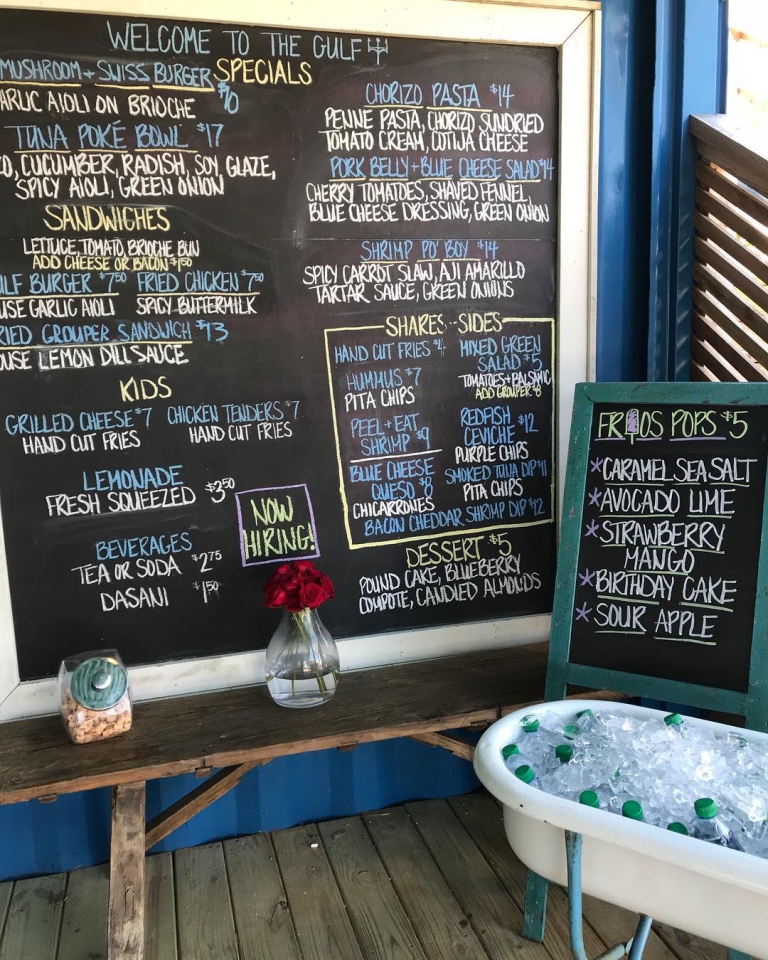 WELCOME TO THE GULF
SPECIALS
MUSHROOM + SWISS BURGER
ARLIC AIOLI ON BRIOCHE
TUNA POKÉ BOWL $17
O, CUCUMBER, RADISH, SOY GLAZE,
SPICY AIOLI, GREEN ONION
SANDWICHES
LETTUCE, TOMATO, BRIOCHE BUN
ADD CHEESE OR BACON $1.50
LF BURGER $7.50 FRIED CHICKEN $7.50
USE GARLIC AIOLI SPICY BUTTERMILK
RIED GROUPER SANDWICH $13
OUSE LEMON DILL SAUCE
KIDS
GRILLED CHEESE $7 CHICKEN TENDERS $7
HAND CUT FRIES HAND CUT FRIES
LEMONADE
FRESH SQUEEZED $3.50
BEVERAGES
TEA OR SODA $2.75
DASANI $1.50
NOW
HIRING!
CHORIZO PASTA $14
PENNE PASTA, CHORIZO, SUNDRIED
TOMATO CREAM, COTIJA CHEESE
PORK BELLY + BLUE CHEESE SALAD $14
CHERRY TOMATOES, SHAVED FENNEL,
BLUE CHEESE DRESSING, GREEN ONION
SHRIMP PO' BOY $14
SPICY CARROT SLAW, AJI AMARILLO
TARTAR SAUCE, GREEN ONIONS
SHARES · SIDES
HAND CUT FRIES $4
HUMMUS $7
PITA CHIPS
PEEL + EAT
SHRIMP $9
BLUE CHEESE
QUESO $8
CHICARRONES
MIXED GREEN
SALAD $5
TOMATOES + BALSAMIC
ADD GROUPER $8
REDFISH
CEVICHE $12
PURPLE CHIPS
SMOKED TUNA DIP $11
PITA CHIPS
BACON CHEDDAR SHRIMP DIP $12
DESSERT $5
POUND CAKE, BLUEBERRY
COMPOTE, CANDIED ALMONDS
FRIOS POPS $5
*CARAMEL SEA SALT
*AVOCADO LIME
*STRAWBERRY
MANGO
*BIRTHDAY CAKE
*SOUR APPLE